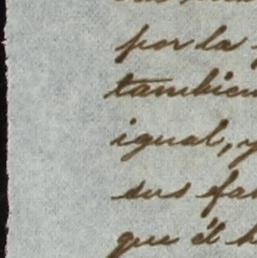 por la
tambien
igual, y
sus
que él